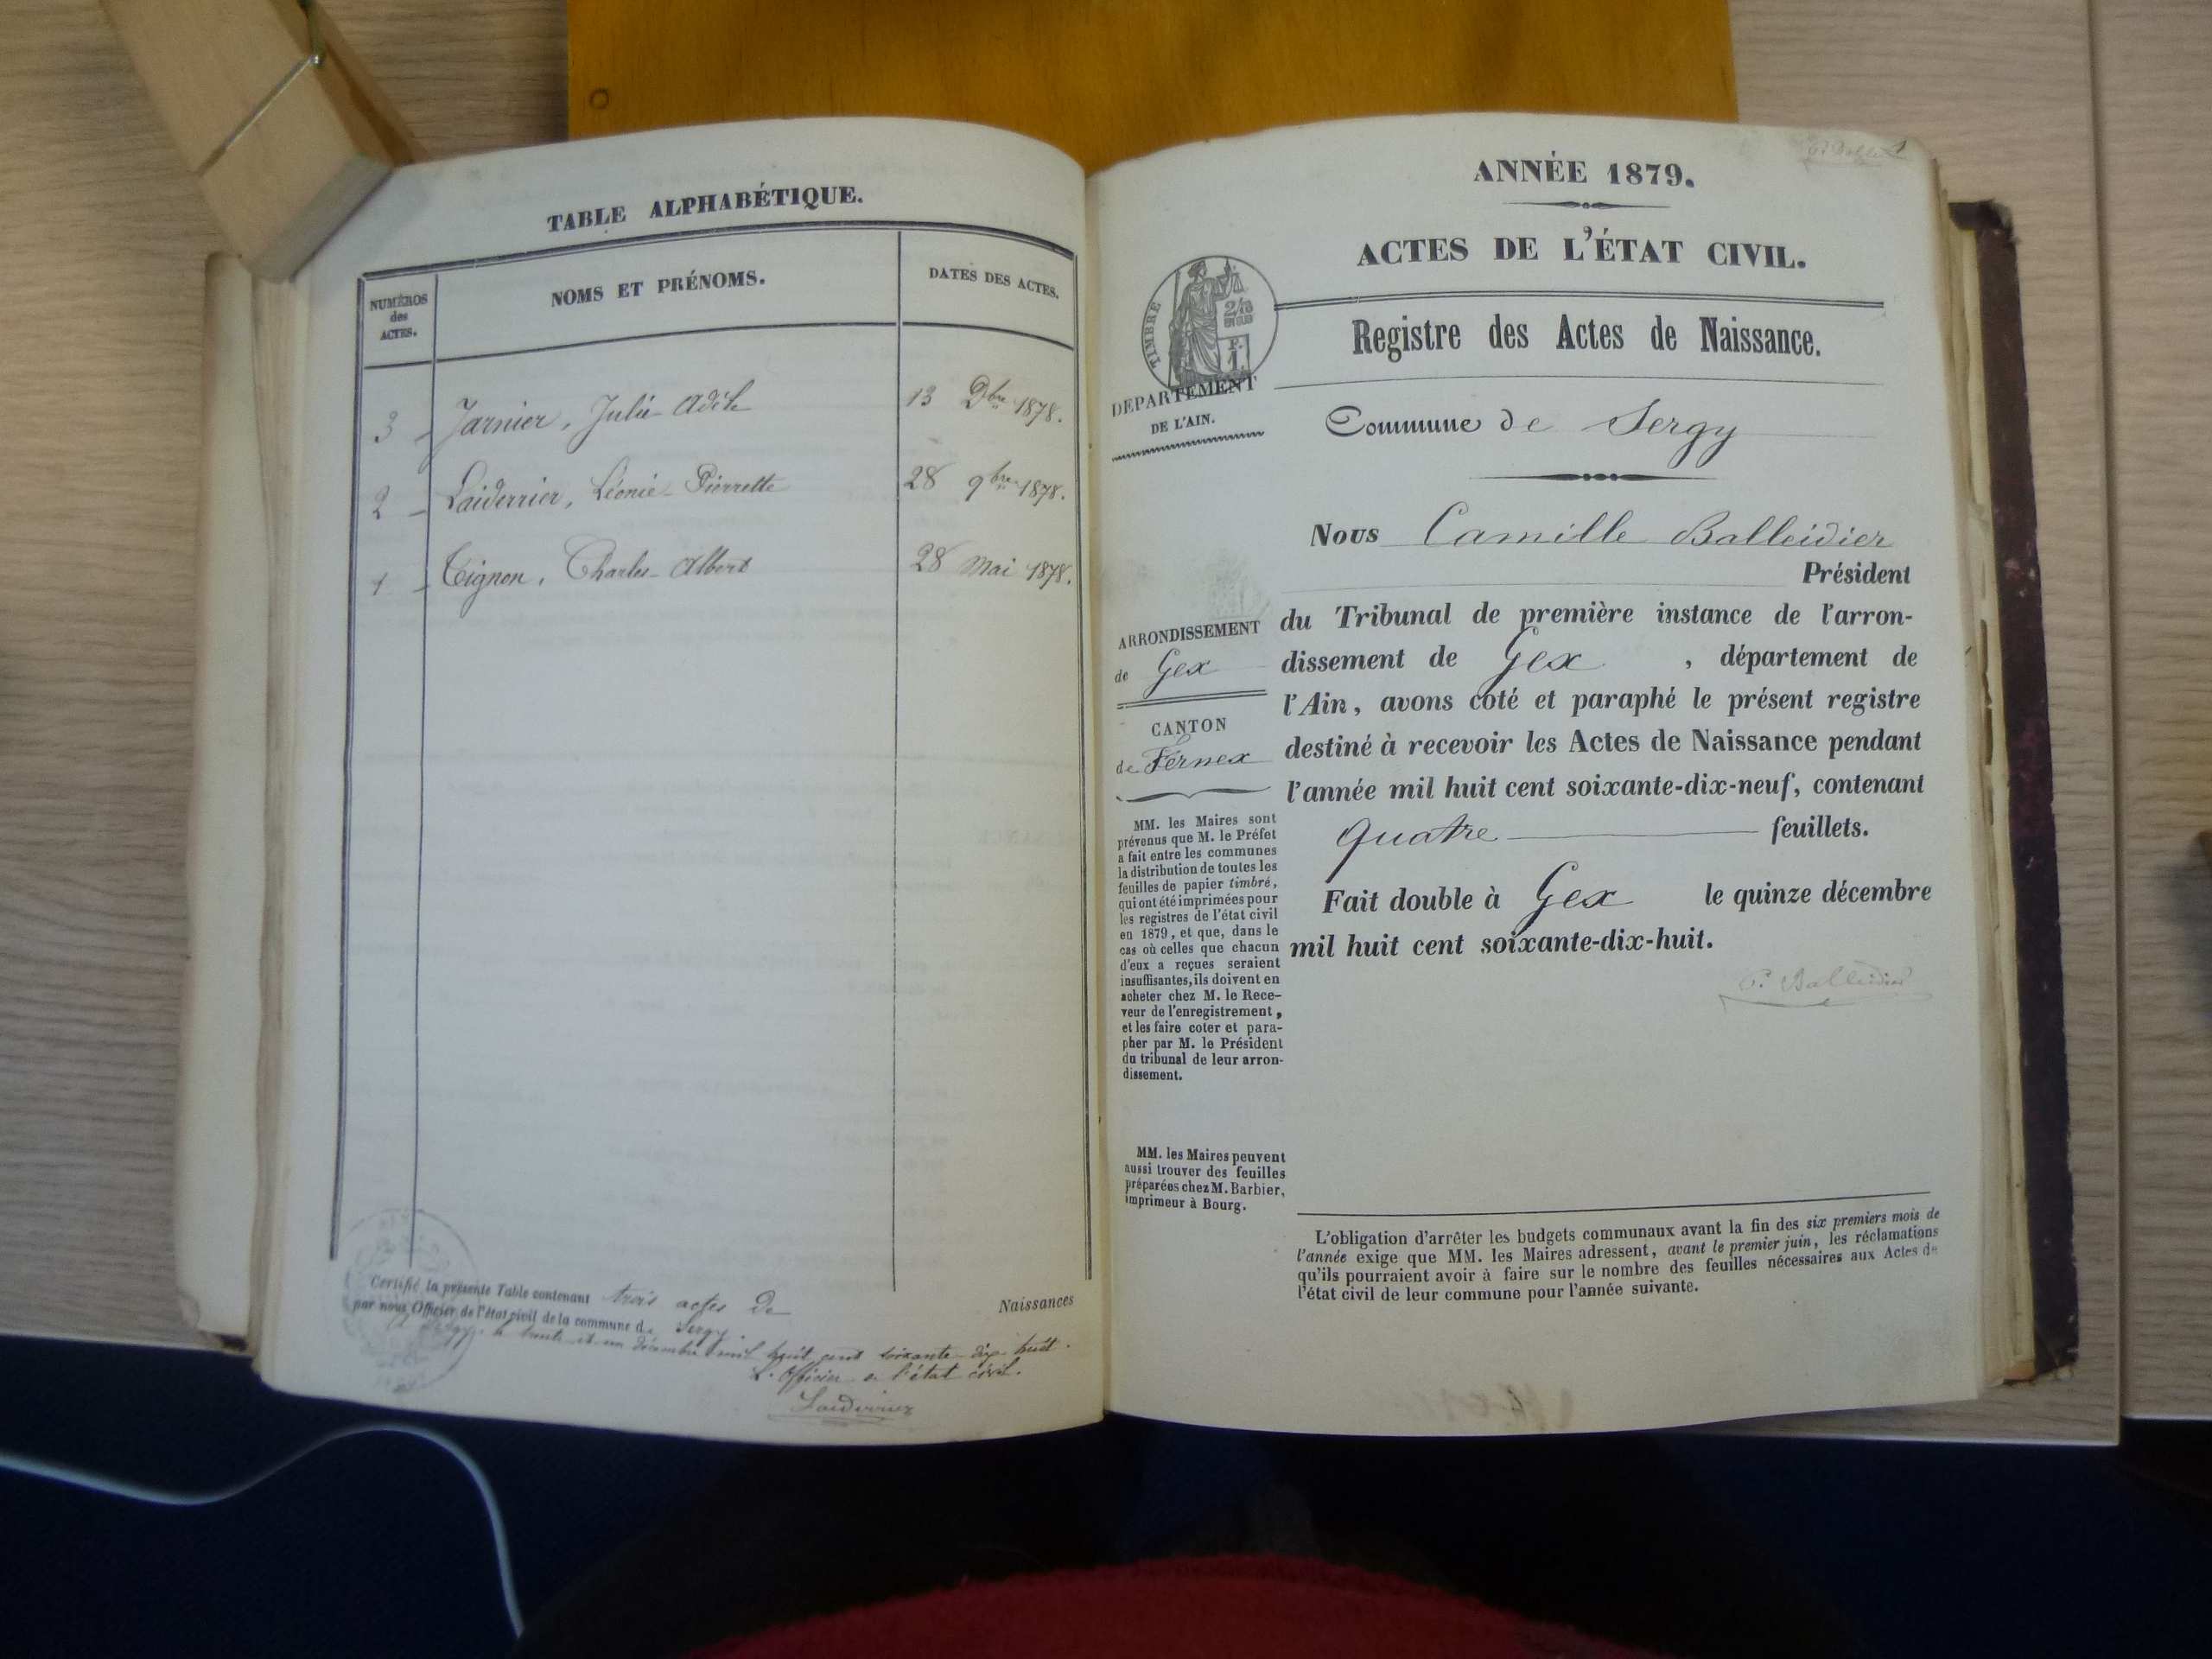 TABLE ALPHABÉTIQUE.
NUMÉROS
des
ACTES.
NOMS ET PRÉNOMS.
DATES DES ACTES.
3 - Jarnier, Julie-Adèle 13 Dbre 1878.
2 - Laiderrier, Léonie-Pierrette 28 9bre 1878.
1 - Tignon, Charles-Albert 28 Mai 1878.
Certifié la présente Table contenant trois actes de Naissances
par nous, Officier de l'état civil de la commune de Sergy.
A Sergy, le trente-et-un décembre mil huit cent soixante-dix-huit.
L'officier de l'état civil.
Laiderrier
ANNÉE 1879.
ACTES DE L'ÉTAT CIVIL.
TIMBRE
2/10
EN SUS
F.
1
DEPARTEMENT
DE L'AIN.
Registre des Actes de Naissance.
Commune de Sergy
Nous Camille Balleidier
Président
du Tribunal de première instance de l'arron-
dissement de Gex , département de
l'Ain, avons coté et paraphé le présent registre
destiné à recevoir les Actes de Naissance pendant
l'année mil huit cent soixante-dix-neuf, contenant
quatre feuillets.
Fait double à Gex le quinze décembre
mil huit cent soixante-dix-huit.
C. Balleidier
ARRONDISSEMENT
de Gex
CANTON
de Fernex
MM. les Maires sont
prévenus que M. le Préfet
a fait entre les communes
la distribution de toutes les
feuilles de papier timbré,
qui ont été imprimées pour
les registres de l'état civil
en 1879, et que, dans le
cas où celles que chacun
d'eux a reçues seraient
insuffisantes, ils doivent en
acheter chez M. le Rece-
veur de l'enregistrement,
et les faire coter et para-
pher par M. le Président
du tribunal de leur arron-
dissement.
MM. les Maires peuvent
aussi trouver des feuilles
préparées chez M. Barbier,
imprimeur à Bourg.
L'obligation d'arrêter les budgets communaux avant la fin des six premiers mois de
l'année exige que MM. les Maires adressent, avant le premier juin, les réclamations
qu'ils pourraient avoir à faire sur le nombre des feuilles nécessaires aux Actes de
l'état civil de leur commune pour l'année suivante.